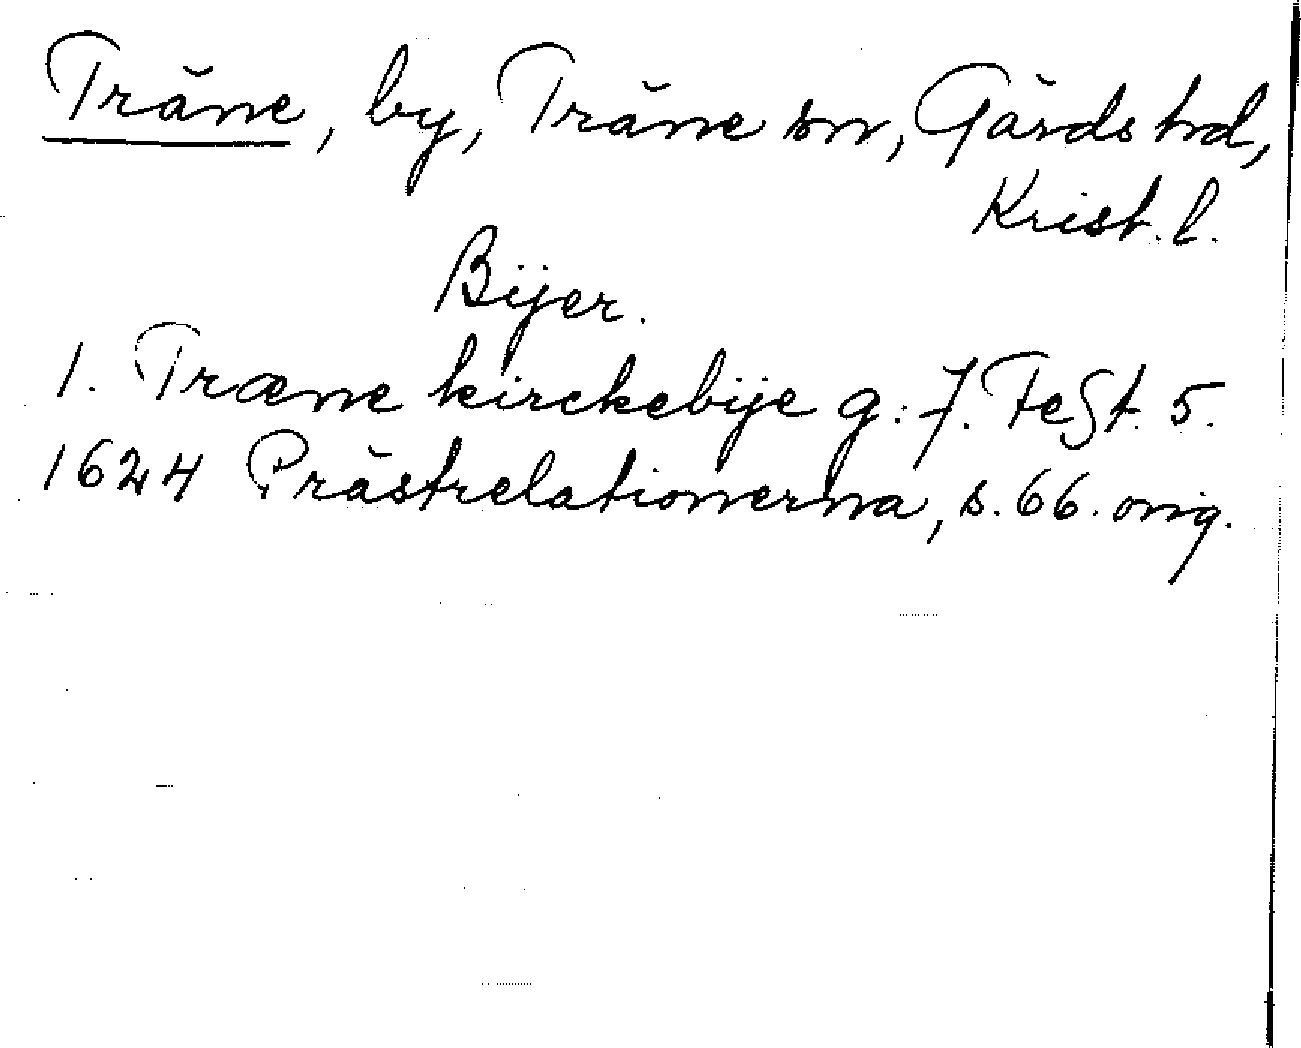 Träne, by, Träne sn, Gärds hd,
Krist. l.
Bijer.
1. Træne kirckebije g: 7. Feßt. 5.
1624 Prästrelationerna, s. 66. orig.